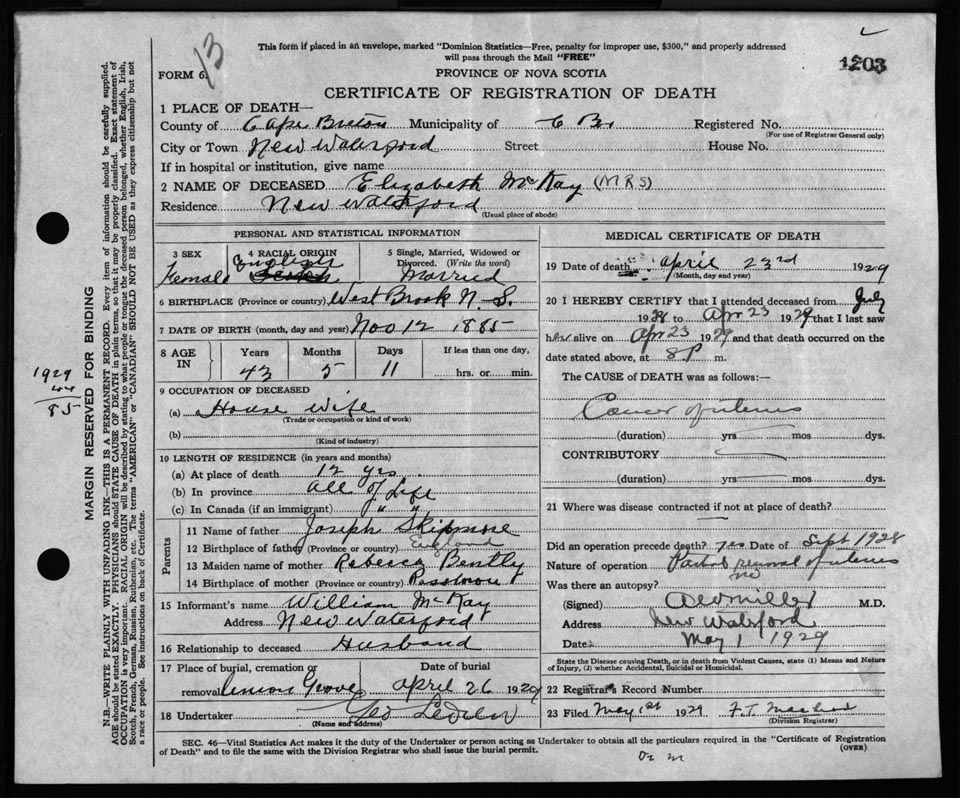 13
This form if placed in an envelope, marked "Dominion Statistics—Free, penalty for improper use, $300," and properly addressed
will pass through the Mail "FREE"
1203
FORM 6.
PROVINCE OF NOVA SCOTIA
CERTIFICATE OF REGISTRATION OF DEATH
1 PLACE OF DEATH—
County of Cape Breton Municipality of C B. Registered No.
(For use of Registrar General only)
City or Town New Waterford Street House No.
If in hospital or institution, give name
2 NAME OF DECEASED Elizabeth McKay (MRS)
Residence New Waterford
(Usual place of abode)
PERSONAL AND STATISTICAL INFORMATION
3 SEX 4 RACIAL ORIGIN 5 Single, Married, Widowed or
Divorced. (Write the word)
Female English Married
6 BIRTHPLACE (Province or country) West Brook N. S.
7 DATE OF BIRTH (month, day and year) Nov 12 1885
8 AGE IN Years Months Days If less than one day,
43 5 11 hrs. or min.
9 OCCUPATION OF DECEASED
(a) House Wife
(Trade or occupation or kind of work)
(b)
(Kind of industry)
10 LENGTH OF RESIDENCE (in years and months)
(a) At place of death 12 yrs.
(b) In province all of Life
(c) In Canada (if an immigrant) " " "
Parents
11 Name of father Joseph Skidmore
12 Birthplace of father (Province or country) England
13 Maiden name of mother Rebecca Bently
14 Birthplace of mother (Province or country)
15 Informant's name William McKay
Address New Waterford
16 Relationship to deceased Husband
17 Place of burial, cremation or Date of burial
removal Grove April 26 1929
18 Undertaker Geo
(Name and address)
MEDICAL CERTIFICATE OF DEATH
19 Date of death April 23rd 1929
(Month, day and year)
20 I HEREBY CERTIFY that I attended deceased from July
1928 to Apr 23 1929 that I last saw
her alive on Apr 23 1929 and that death occurred on the
date stated above, at 8 P m.
The CAUSE of DEATH was as follows:—
Cancer of uterus
(duration) yrs. mos dys.
CONTRIBUTORY
(duration) yrs. mos. dys.
21 Where was disease contracted if not at place of death?
Did an operation precede death? yes Date of Sept 1928
Nature of operation Partial removal of uterus
Was there an autopsy? no
(Signed) Miller M.D.
Address New Waterford
Date May 1 1929
State the Disease causing Death, or in death from Violent Causes, state (1) Means and Nature
of Injury, (2) whether Accidental, Suicidal or Homicidal.
22 Registrar's Record Number
23 Filed May 1st 1929 F. T.
(Division Registrar)
SEC. 46—Vital Statistics Act makes it the duty of the Undertaker or person acting as Undertaker to obtain all the particulars required in the "Certificate of Registration
of Death" and to file the same with the Division Registrar who shall issue the burial permit. (OVER)
1929
44
85
MARGIN RESERVED FOR BINDING
N.B.—WRITE PLAINLY WITH UNFADING INK—THIS IS A PERMANENT RECORD. Every item of information should be carefully supplied.
AGE should be stated EXACTLY. PHYSICIANS should STATE CAUSE OF DEATH in plain terms, so that it may be properly classified. Exact statement of
OCCUPATION is very important. RACIAL ORIGIN will be described by stating to what people or tongue the deceased person belonged, whether English, Irish,
Scotch, French, German, Russian, Ruthenian, etc. The terms "AMERICAN" or "CANADIAN" SHOULD NOT BE USED as they express citizenship but not
a race or people. See instructions on back of Certificate.